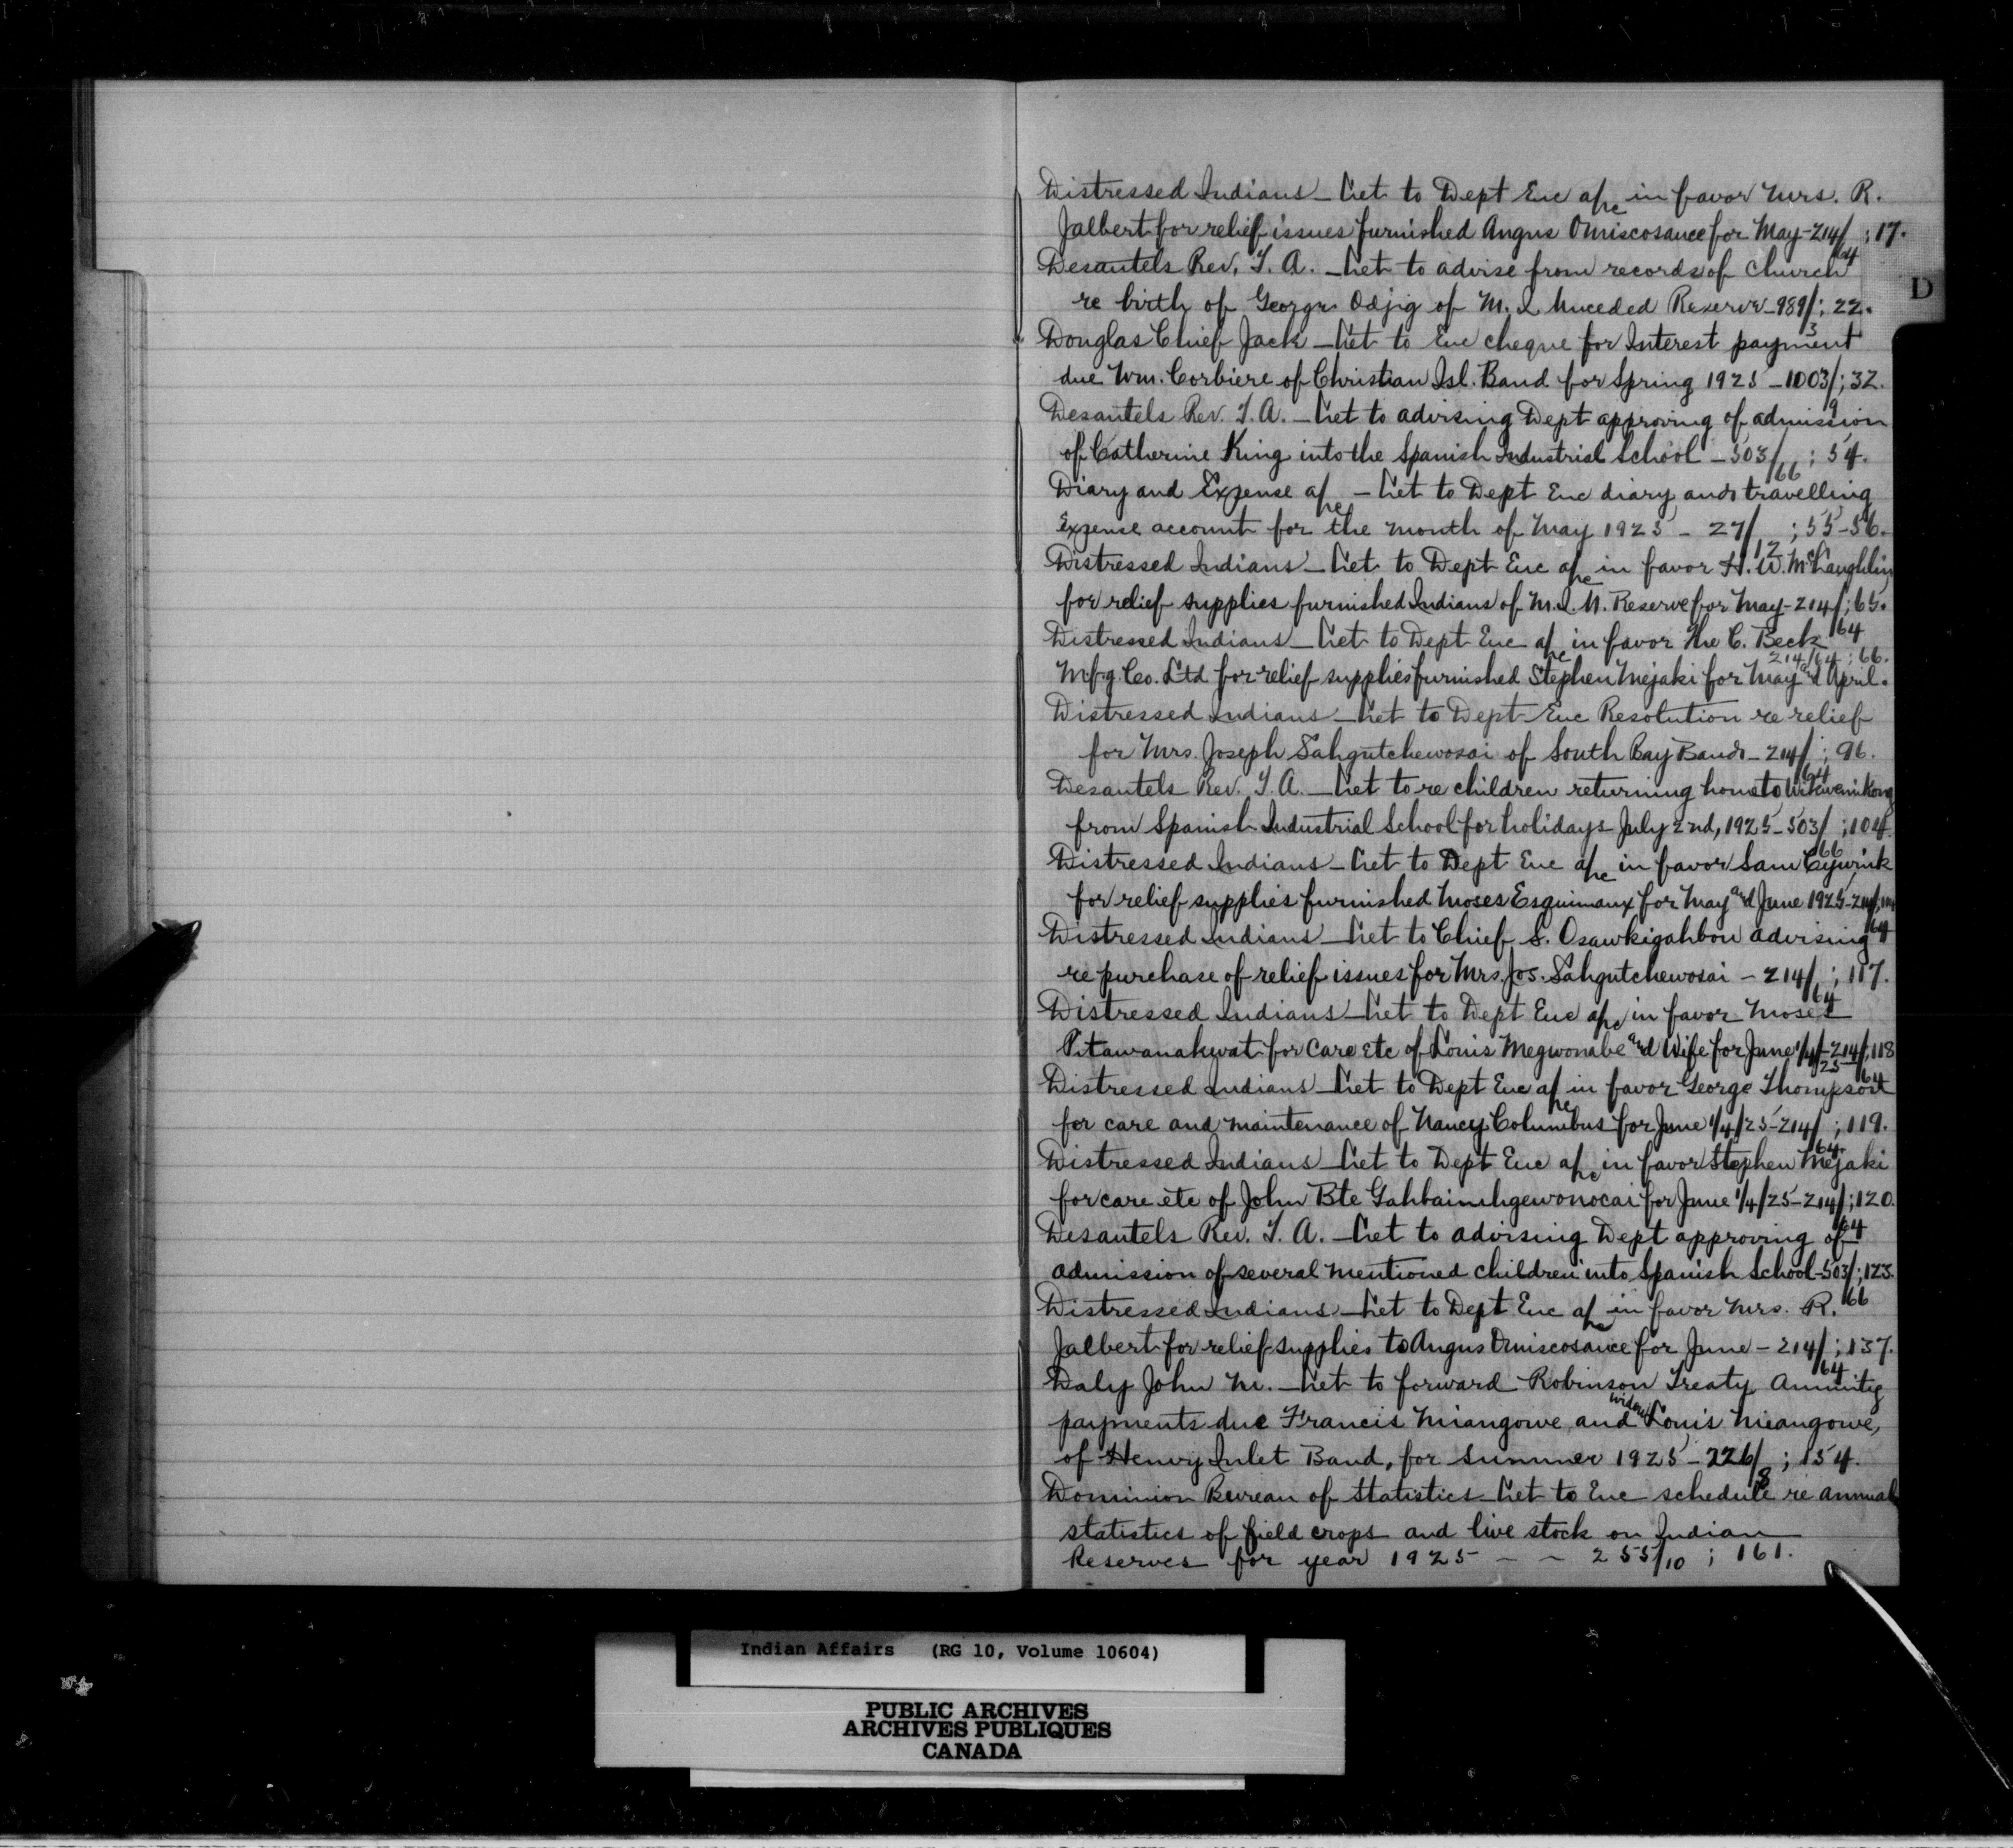 Distressed Indians - Let to Dept Enc a/c in favor Mrs. R.
Jalbert for relief issues furnished Angus Omiscosauce for May - 214/64 ; 17.
Desautels Rev. T. A. - Let to advise from records of Church
re birth of George Odjig of M. I. Unceded Reserve - 989/3 ; 22.
D
Douglas Chief Jack - Let to Enc cheque for Interest payment
due Wm. Corbiere of Christian Isl. Band for Spring 1925 - 1003/9 ; 32.
Desautels Rev. T. A. - Let to advising Dept approving of admission
of Catherine King into the Spanish Industrial School - 503/66 ; 54.
Diary and Expense a/c - Let to Dept Enc diary and travelling
Expense account for the month of May 1925 - 27/12 ; 55-56.
Distressed Indians - Let to Dept Enc a/c in favor H. W. McLaughlin
for relief supplies furnished Indians of M. I. U. Reserve for May - 214/64 ; 65.
Distressed Indians - Let to Dept Enc a/c in favor The C. Beck
Mfg. Co. Ltd for relief supplies furnished Stephen Mejaki for May and April. 214/64 ; 66.
Distressed Indians - Let to Dept Enc Resolution re relief
for Mrs. Joseph Sahgutchewosai of South Bay Band - 214/64 ; 96.
Desautels Rev. T. A. - Let to re children returning home to Wikwemikong
from Spanish Industrial School for holidays July 2nd, 1925 - 503/66 ; 104.
Distressed Indians - Let to Dept Enc a/c in favor Sam
for relief supplies furnished Moses Esquimaux for May and June 1925 - 214/64 ;
Distressed Indians - Let to Chief S. Osawkigahbou advising
re purchase of relief issues for Mrs. Jos. Sahgutchewosai - 214/64 ; 117.
Distressed Indians - Let to Dept Enc a/c in favor Moses
Pitawanakwat for care etc of Louis Megwonabe and Wife for June 1/4/25 - 214/64 ; 118
Distressed Indians - Let to Dept Enc a/c in favor George Thompson
for care and maintenance of Nancy Columbus for June 1/4/25 - 214/64 ; 119.
Distressed Indians - Let to Dept Enc a/c in favor Stephen Mejaki
for care etc of John Bte for June 1/4/25 - 214/64 ; 120.
Desautels Rev. T. A. - Let to advising Dept approving of
admission of several mentioned children into Spanish School - 503/66 ; 123.
Distressed Indians - Let to Dept Enc a/c in favor Mrs. R.
Jalbert for relief supplies to Angus Omiscosauce for June - 214/64 ; 137.
Daly John M. - Let to forward Robinson Treaty Annuity
payments due Francis Miangowe and widow Louis Mieangowe,
of Henvy Inlet Band, for Summer 1925 - 226/8 ; 154.
Dominion Bureau of Statistics - Let to Enc schedule re annual
statistics of field crops and live stock on Indian
Reserves for year 1925 - - 255/10 ; 161.
Indian Affairs (RG 10, Volume 10604)
PUBLIC ARCHIVES
ARCHIVES PUBLIQUES
CANADA